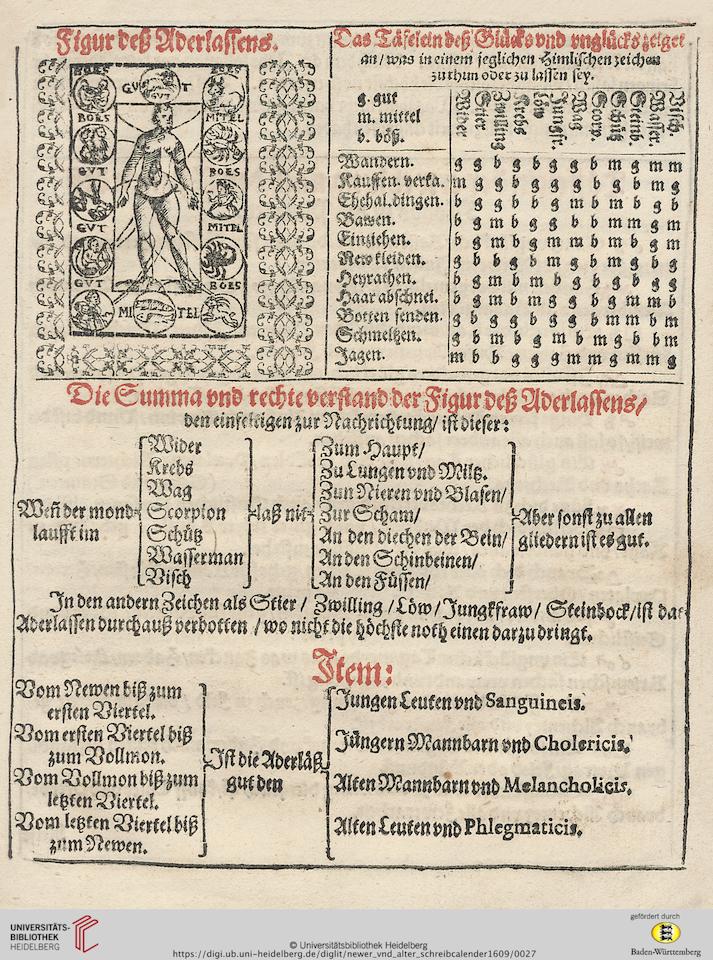 Figur deß Aderlassens.
BOES
GUT
BOES
GUT
BOES
MITEL
GUT
BOES
GUT
MITEL
GUT
BOES
MITEL
Das Täfelein deß Glücks vnd vnglücks zeiget
an / was in einem jeglichen Himlischen zeichen
zu thun oder zu lassen sey.
g. gut
m. mittel
b. böß.
Wider
Stier
Zwilling
Krebs
Löw
Jungfr.
Wag
Scorp.
Schütz
Steinb.
Wasser.
Visch
Wandern. g g b g b g g b m g m m
Kauffen. verka. m g g b g g g b g b m g
Ehehal. dingen.
Bawen. b g m b g g b b m m g m
Einziehen. b g m g m m m b m b g m
New kleiden. g b b g b m g b m g b g
Heyrathen.
Haar abschnei.
Botten senden.
Schmeltzen.
Jagen. m b b g g g m m g m m g
Die Summa vnd rechte verstand der Figur deß Aderlassens /
den einfeltigen zur Nachrichtung / ist dieser:
Weñ der mond
laufft im
Wider
Krebs
Wag
Scorpion
Schütz
Wasserman
Visch
laß nit
Zum Haupt /
Zu Lungen vnd Miltz.
Zun Nieren vnd Blasen /
Zur Scham /
An den diechen der Bein /
An den Schinbeinen /
An den Füssen /
Aber sonst zu allen
gliedern ist es gut.
In den andern Zeichen als Stier / Zwilling / Löw / Jungkfraw / Steinbock / ist das
Aderlassen durchauß verbotten / wo nicht die höchste noth einen darzu dringt.
Item:
Vom Newen biß zum
ersten Viertel.
Vom ersten Viertel biß
zum Vollmon.
Vom Vollmon biß zum
letzten Viertel.
Vom letzten Viertel biß
zum Newen.
Ist die Aderläß
gut den
Jungen Leuten vnd Sanguineis.
Jüngern Mannbarn vnd Cholericis.
Alten Mannbarn vnd Melancholicis.
Alten Leuten vnd Phlegmaticis.
UNIVERSITÄTS-
BIBLIOTHEK
HEIDELBERG
© Universitätsbibliothek Heidelberg
https://digi.ub.uni-heidelberg.de/diglit/newer_vnd_alter_schreibcalender1609/0027
gefördert durch
Baden-Württemberg